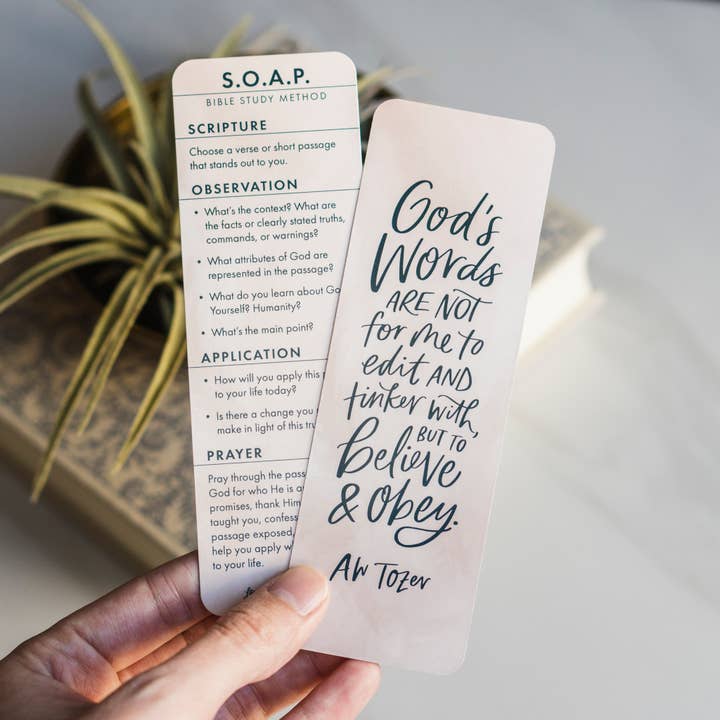 S.O.A.P.
BIBLE STUDY METHOD
SCRIPTURE
Choose a verse or short passage
that stands out to you.
OBSERVATION
• What's the context? What are
the facts or clearly stated truths,
commands, or warnings?
• What attributes of God are
represented in the passage?
• What do you learn about
Yourself? Humanity?
• What's the main point?
APPLICATION
• How will you apply this
to your life today?
• Is there a change you
make in light of this
PRAYER
Pray through the
God for who He is
promises, thank Him
taught you, confess
passage exposed,
help you apply
to your life.
God's
Words
ARE NOT
for me to
edit AND
tinker with,
BUT TO
believe
& Obey.
AW TOZER